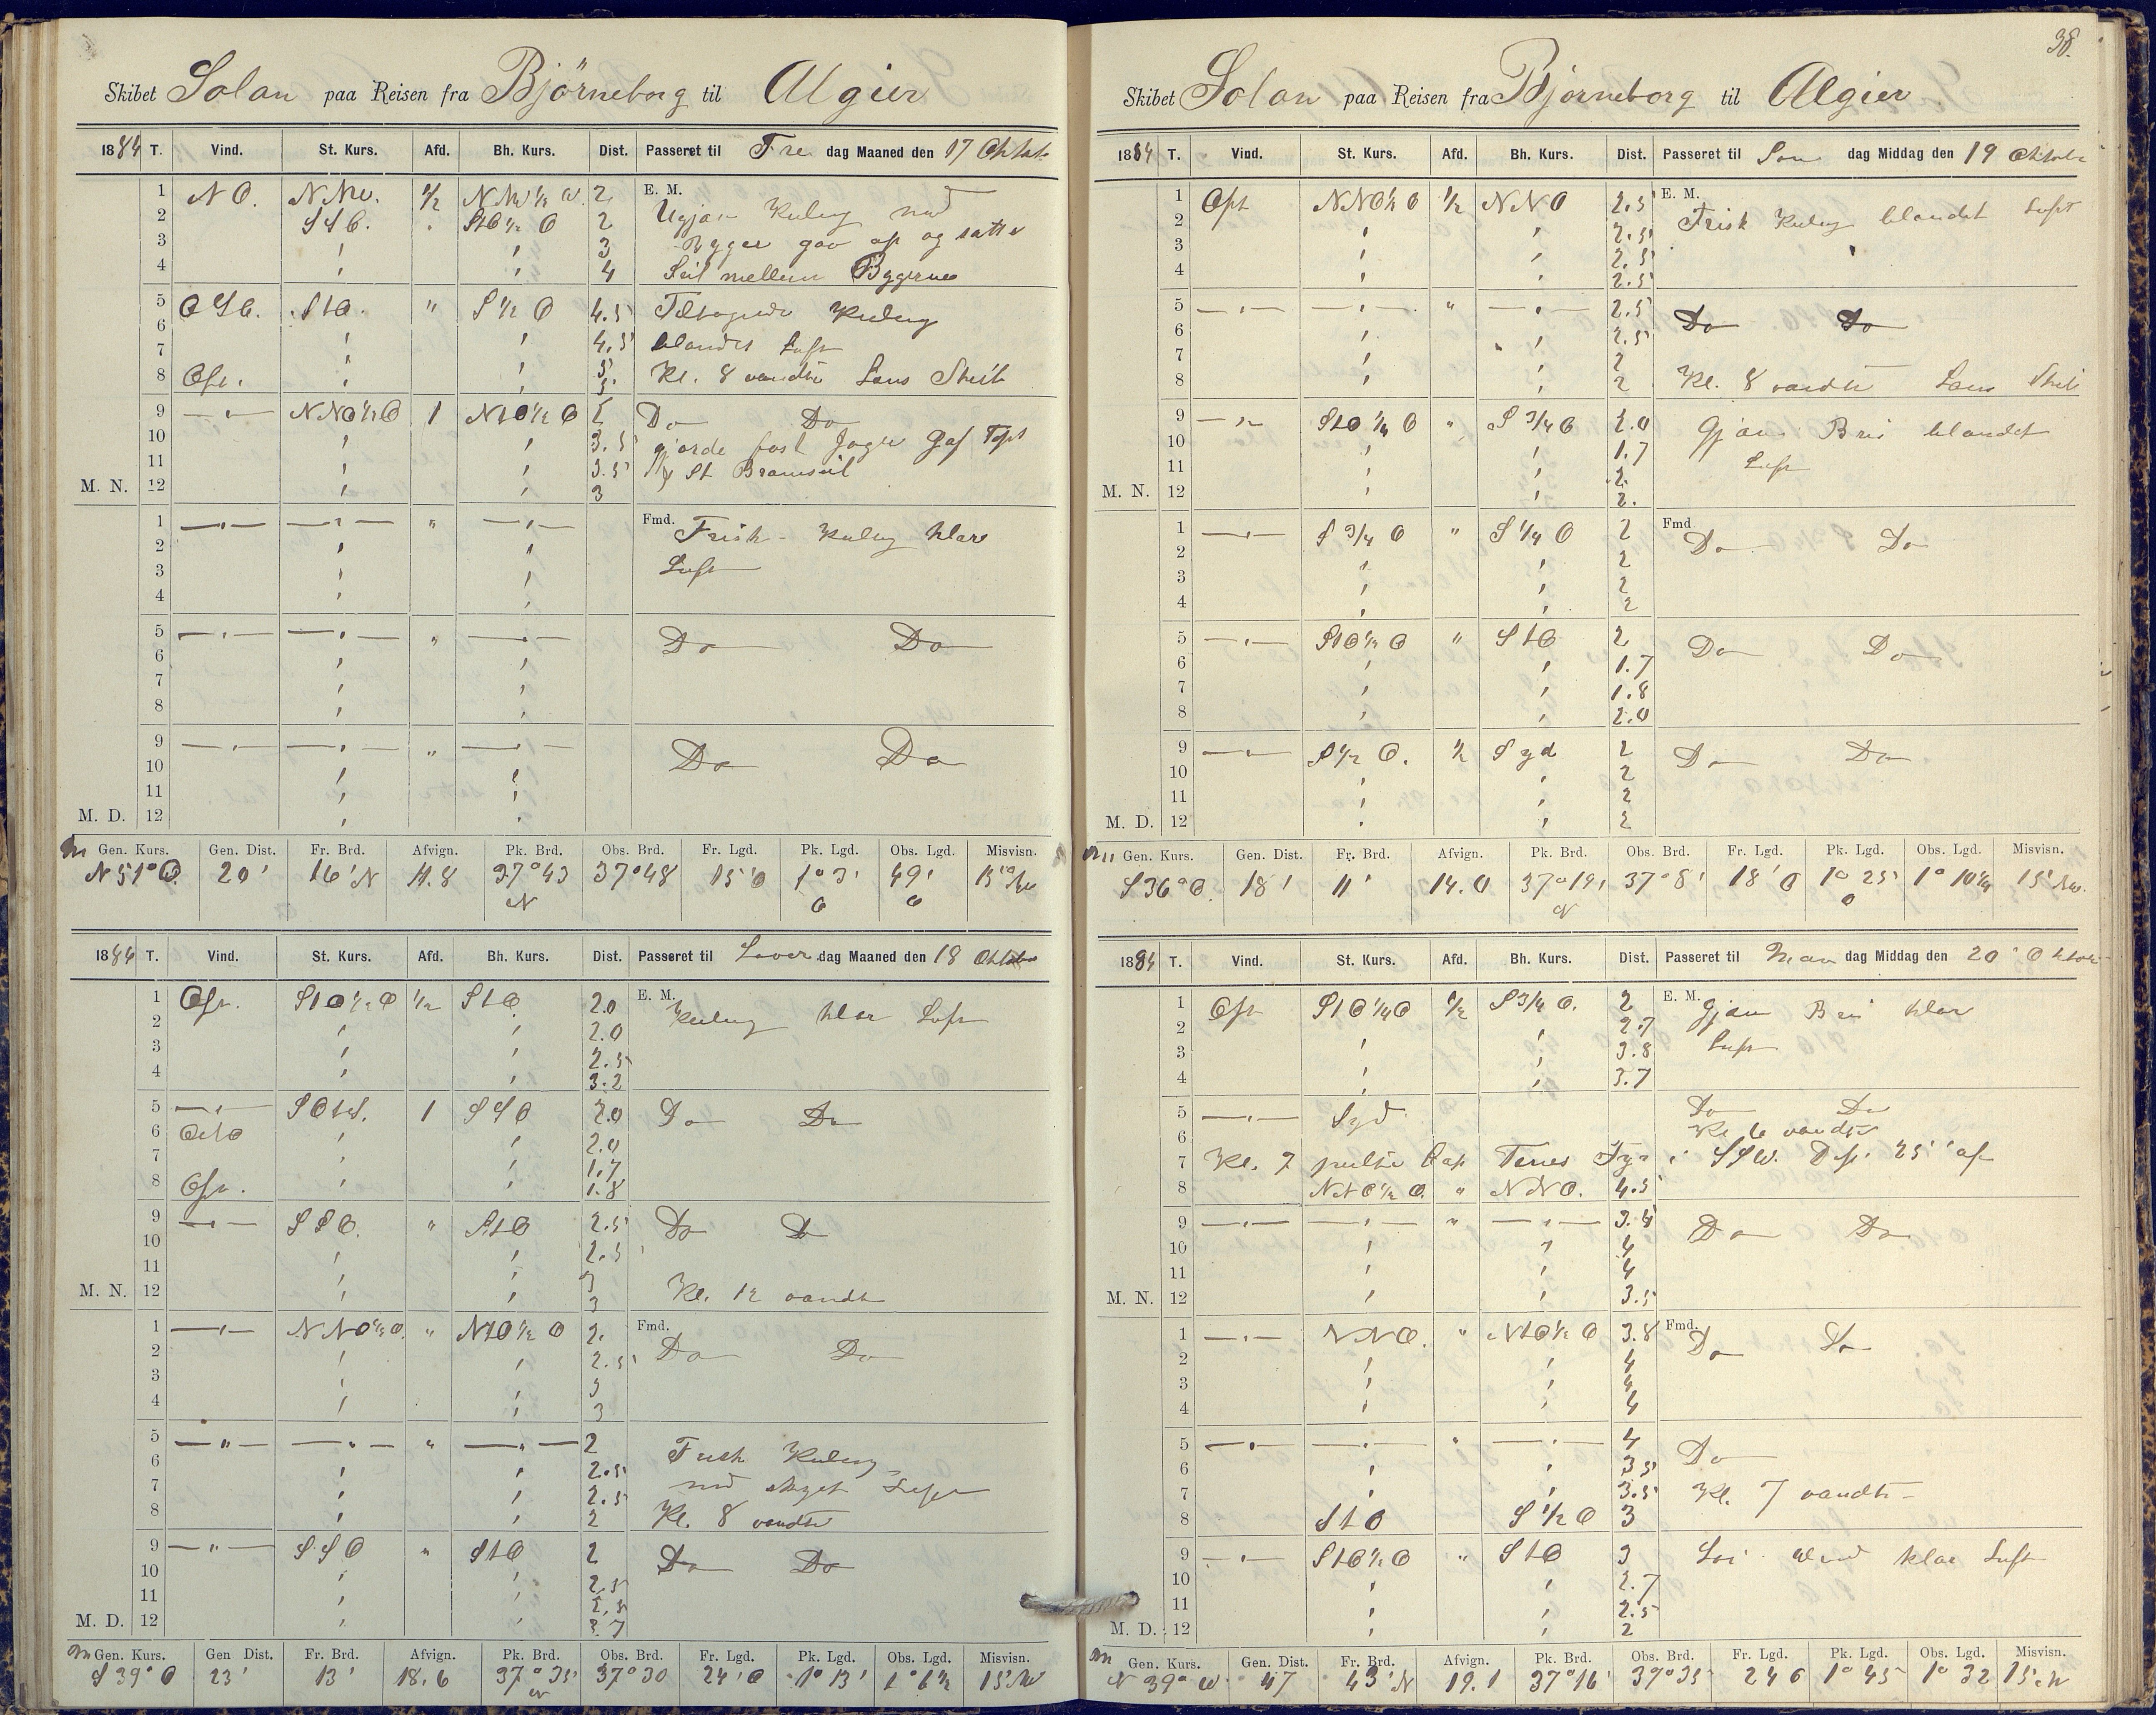 Skibet Solan paa Reisen fra Björneborg til Algier
1884 T. Vind. St. Kurs. Afd. Bh. Kurs. Dist. Passeret til Fre dag Maaned den 17 Oktob
1 N O. NNW. 1/2 NNW 1/2 W. 2 E. M.
2 SSO. " StO 1/2 O 2 Kuling med
3 3 Bygger gav af og satte
4 4 Seil mellem Byggerne
5 O StO. " S 1/2 O 4.5 Kuling
6 4.5 blandet Luft
7 5
8 Oft. 5. Kl. 8 vandte Lens Skib
9 —"— NNO 1/2 O 1 NtO 1/2 O Do Do
10 3.5 gjorde fast Jager Gaf Tops
11 3.5 St Bramseil
M. N. 12 3
1 —"— —"— " —"— Fmd. Frisk Kuling klar
2 Luft
3
4
5 —"— —"— " —"— Do Do
6
7
8
9 —"— —"— " —"— Do Do
10
11
M. D. 12
Gen. Kurs. Gen. Dist. Fr. Brd. Afvign. Pk. Brd. Obs. Brd. Fr. Lgd. Pk. Lgd. Obs. Lgd. Misvisn.
N 51° O. 20' 16' N 11.8 37° 43 N 37° 48 15' O 1° 3' O 49' O 15° W
1884 T. Vind. St. Kurs. Afd. Bh. Kurs. Dist. Passeret til Löver dag Maaned den 18 Oktober
1 Oft. StO 1/2 O 1/2 StO 2.0 E. M. Kuling klar Luft
2 2.0
3 2.5
4 3.2
5 —"— SOtS. 1 SSO 2.0 Do Do
6 OtO 2.0
7 1.7
8 Oft. 1.8
9 —"— SSO. " StO 2.5 Do Do
10 2.5
11 3
M. N. 12 3 Kl. 12 vandte
1 —"— NNO 1/2 O. " NtO 1/2 O 2. Fmd. Do Do
2 2.5
3 3
4 3
5 —"— —"— " —"— 2 Frisk Kuling
6 2.5
7 2.5 med skyet Luft
8 2 Kl. 8 vandte
9 —"— SSO " StO 2 Do Do
10 2.5
11 2.5
M. D. 12 3.7
Gen. Kurs. Gen Dist. Fr. Brd. Afvign. Pk. Brd. Obs. Brd. Fr. Lgd. Pk. Lgd. Obs. Lgd. Misvisn.
S 39° O 23' 13' 18.6 37° 35' N 37° 30 24' O 1° 13' 1° 6 1/2 15° W
38.
Skibet Solan paa Reisen fra Björneborg til Algier
1884 T. Vind. St. Kurs. Afd. Bh. Kurs. Dist. Passeret til Søn dag Middag den 19 Oktober
1 Oft NNO 1/2 O 1/2 NNO 2.5 E. M. Frisk Kuling blandet Luft
2 2.5
3 2.5
4 2.5
5 —"— —"— " —"— 2.5 Do Do
6 2.5
7 2
8 2 Kl. 8 vandte Lens Skib
9 —"— StO 1/4 O " S 3/4 O 2.0 Gjam Bris blandet
10 1.7 Luft
11 2.
M. N. 12 2.
1 —"— S 3/4 O " S 1/4 O 2 Fmd Do Do
2 2
3 2
4 2
5 —"— StO 1/2 O " StO 2 Do Do
6 1.7
7 1.8
8 2.0
9 —"— S 1/2 O. 1/2 Syd 2 Do Do
10 2
11 2
M. D. 12 2
Gen. Kurs. Gen. Dist. Fr. Brd. Afvign. Pk. Brd. Obs. Brd. Fr. Lgd. Pk. Lgd. Obs. Lgd. Misvisn.
S 36° O. 18' 11' 14.0 37° 19' N 37° 8' 18' O 1° 25' O 1° 10 1/4 15° W.
1884 T. Vind. St. Kurs. Afd. Bh. Kurs. Dist. Passeret til Man dag Middag den 20 Oktober
1 Oft StO 1/4 O 1/2 S 3/4 O. 2 E. M. Gjam Bris klar
2 2.7
3 3.8 Luft
4 3.7
5 —"— Syd Do Do
6 Kl. 6 vandte
7 Kl. 7 peilte Cap Tenes Fyr i SSW. Dist. 25' af
8 NNO 1/2 O. " NNO. 4.5
9 —"— —"— " —"— 3.4 Do Do
10 4
11 4
M. N. 12 3.5
1 —"— NNO. " NtO 1/2 O 3.8 Fmd. Do Do
2 4
3 4
4 4
5 —"— —"— " —"— 4 Do
6 3.5
7 3.5 Kl. 7 vandte
8 StO S 1/2 O 3
9 —"— StO 1/2 O " StO 3 Löi Vind klar Luft
10 2.7
11 2.5
M. D. 12 2
Gen. Kurs. Gen. Dist. Fr. Brd. Afvign. Pk. Brd. Obs. Brd. Fr. Lgd. Pk. Lgd. Obs. Lgd. Misvisn.
N 39° O 47 43' N 19.1 37° 16' 37° 35' 24 O 1° 45 1° 32 15° W